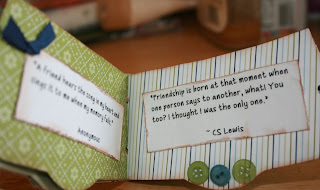 "A friend hears the song in my heart and
sings it to me when my memory fails."
Anonymous
"Friendship is born at that moment when
one person says to another, what! You
too? I thought I was the only one."
~ CS Lewis